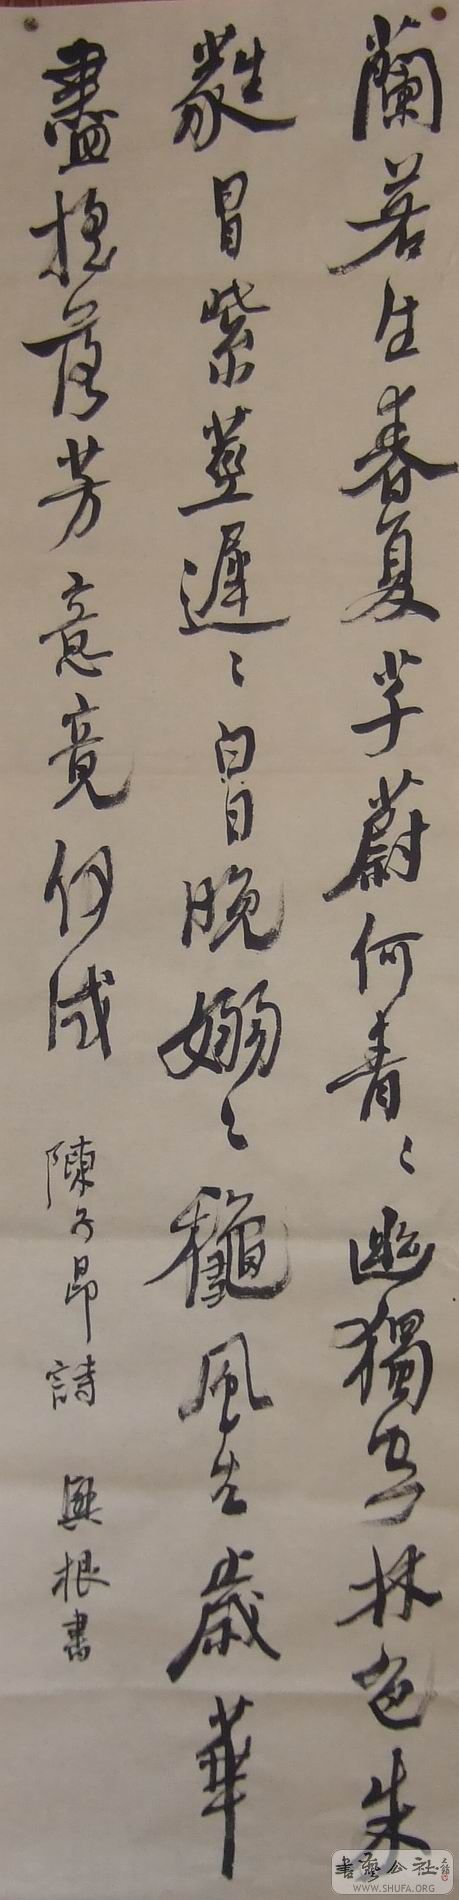 蘭若生春夏芊蔚何青〻幽獨空林色朱
蕤冒紫莖遲〻白日晚嫋〻龝風生歲華
盡搖落芳意竟何成
陳子昂詩 興根書
書藝公社
WWW.SHUFA.ORG